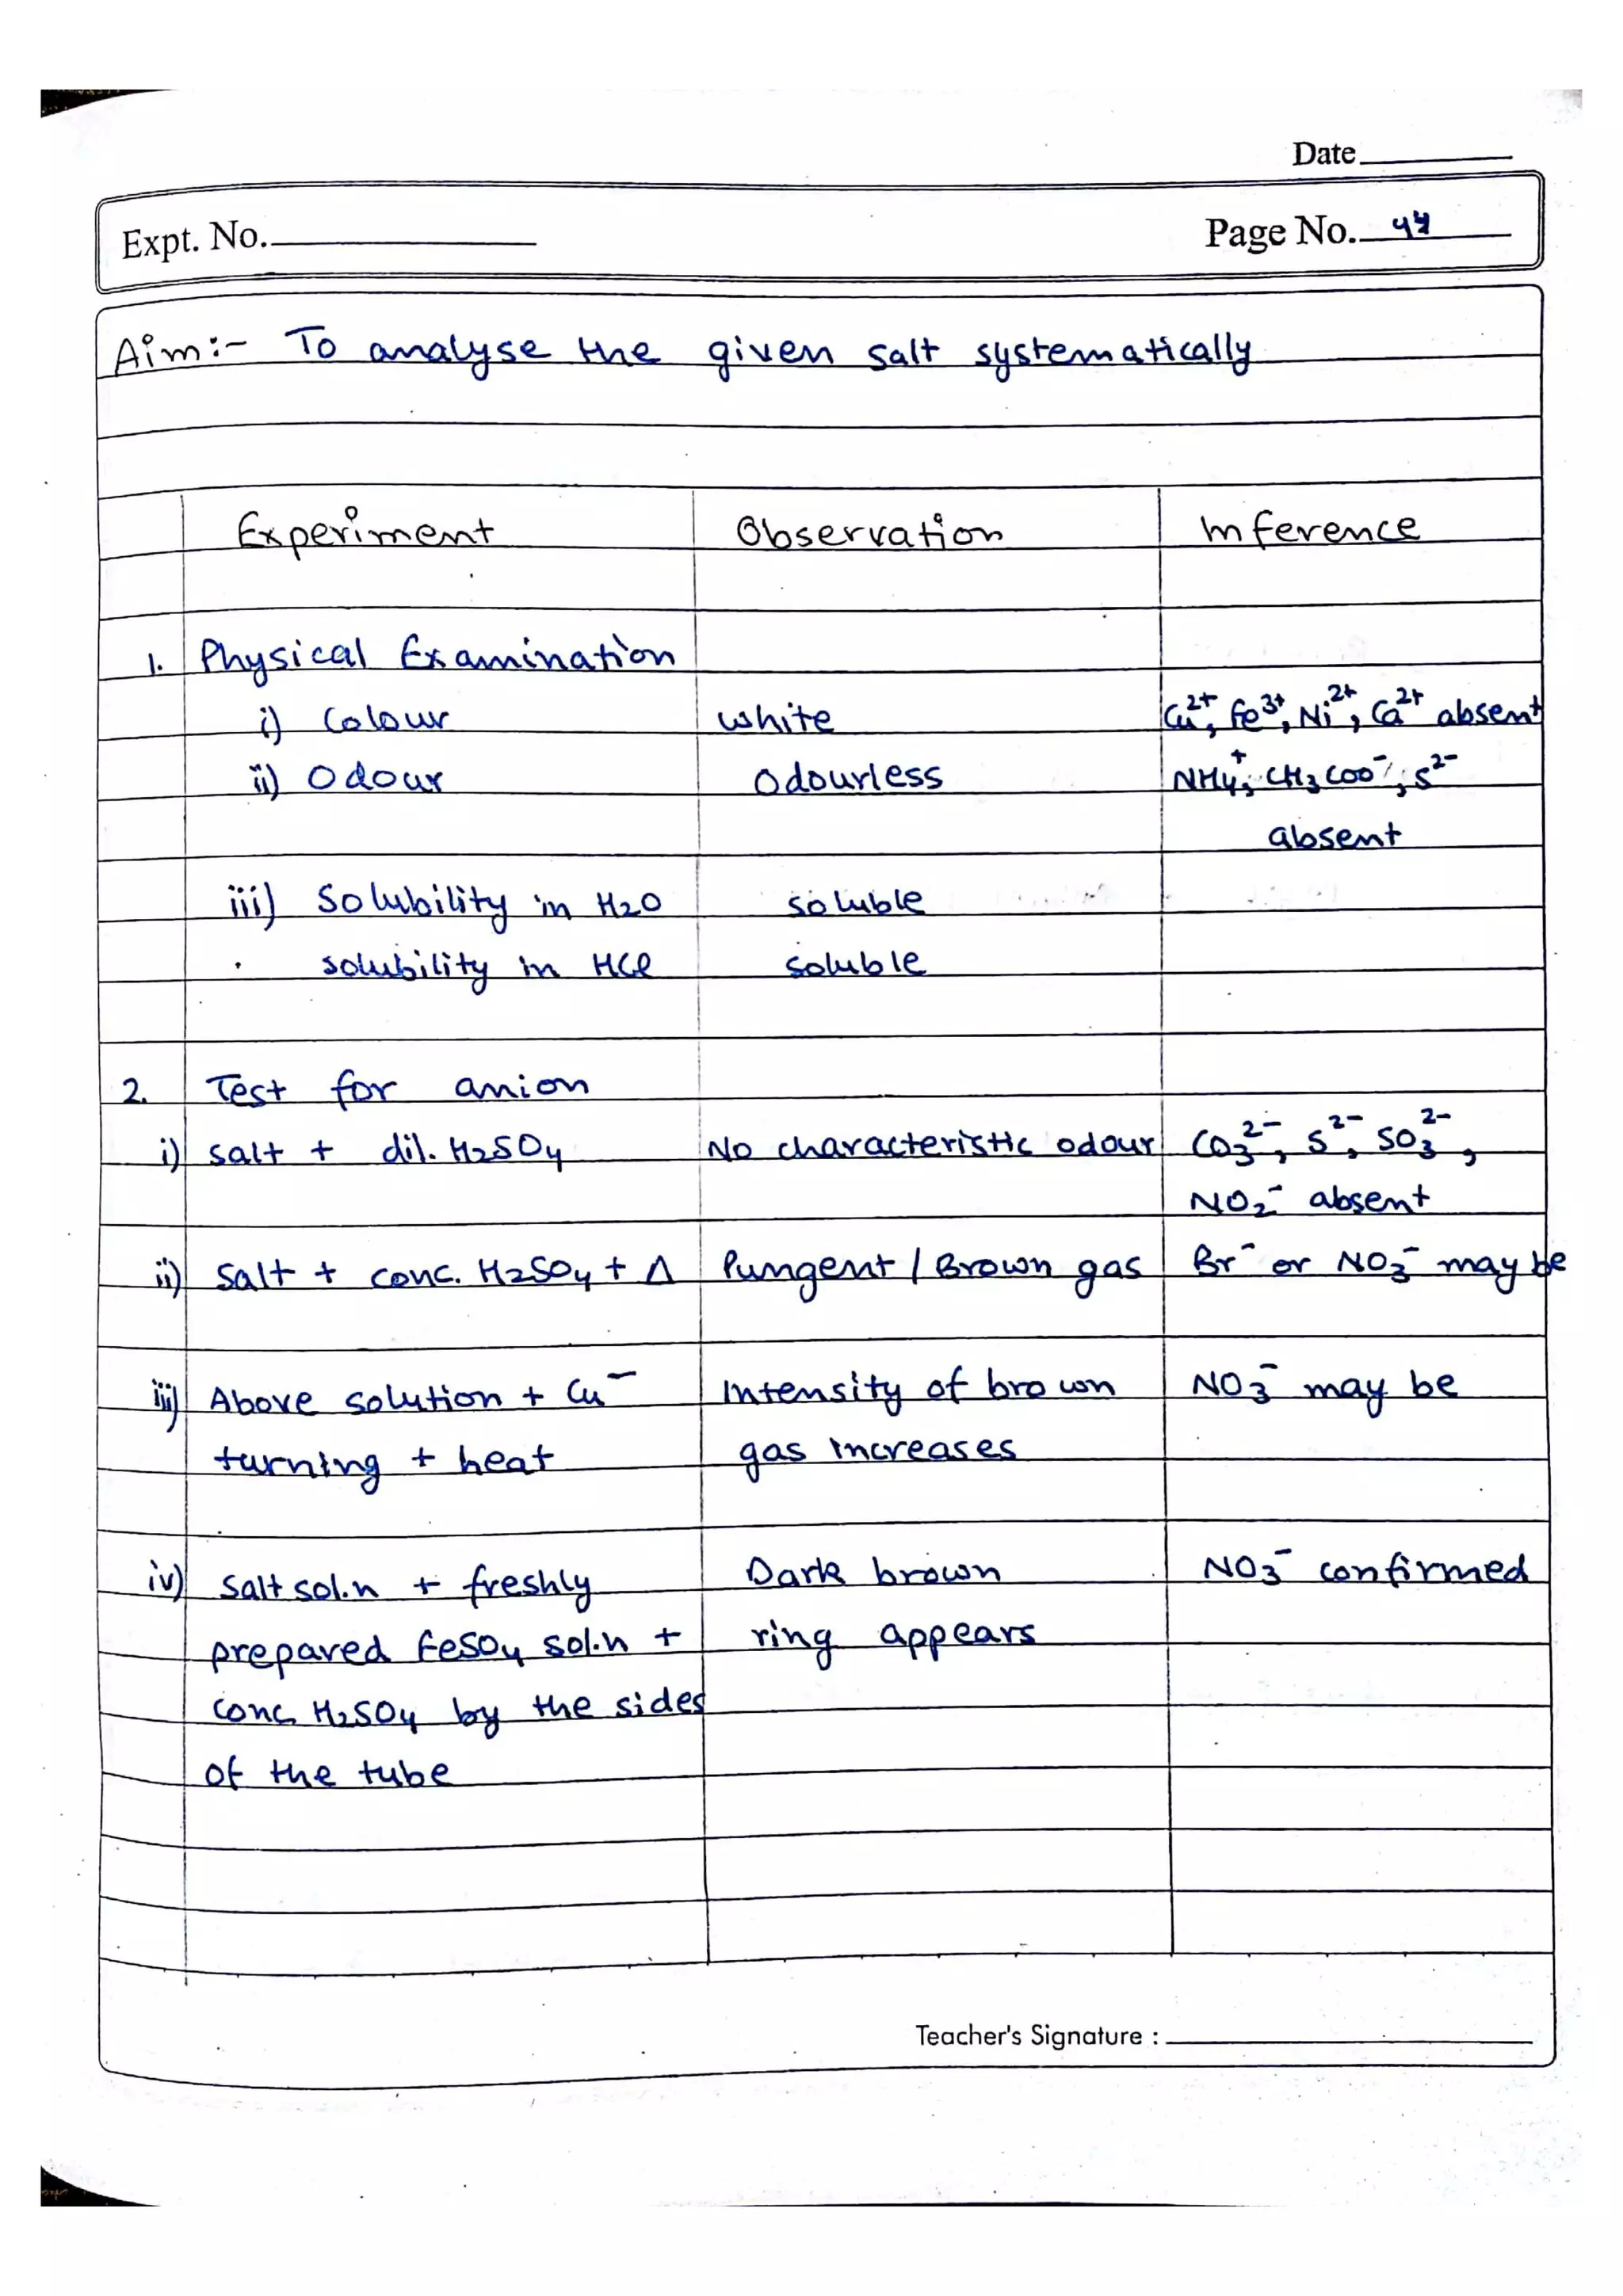 Date
Expt. No. Page No. 44
Aim:- To analyse the given salt systematically
Experiment Observation Inference
1. Physical Examination
i) Colour white Cu²⁺, Fe³⁺, Ni²⁺, Ca²⁺ absent
ii) Odour Odourless NH₄⁺, CH₃COO⁻, S²⁻
absent
iii) Solubility in H₂O soluble
solubility in HCl soluble
2. Test for anion
i) salt + dil. H₂SO₄ No characteristic odour CO₃²⁻, S²⁻, SO₃²⁻,
NO₂⁻ absent
ii) Salt + conc. H₂SO₄ + Δ Pungent / Brown gas Br⁻ or NO₃⁻ may be
iii) Above solution + Cu⁻ Intensity of brown NO₃⁻ may be
turning + heat gas increases
iv) Salt sol.n + freshly Dark brown NO₃⁻ confirmed
prepared FeSO₄ sol.n + ring appears
conc H₂SO₄ by the sides
of the tube
Teacher's Signature :